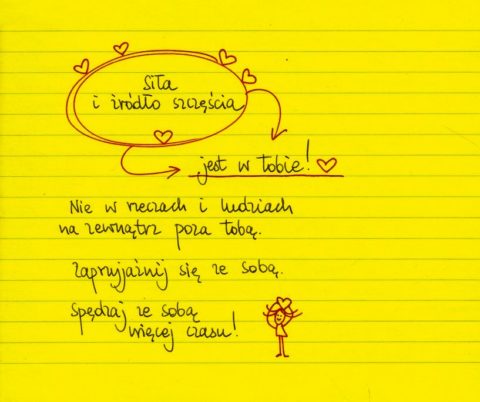 Siła
i źródło szczęścia
jest w tobie!
Nie w rzeczach i ludziach
na zewnątrz poza tobą.
Zaprzyjaźnij się ze sobą.
Spędzaj ze sobą
więcej czasu!